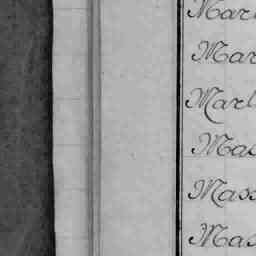 Marl
Mar
Marl
Mas
Mass
Mas